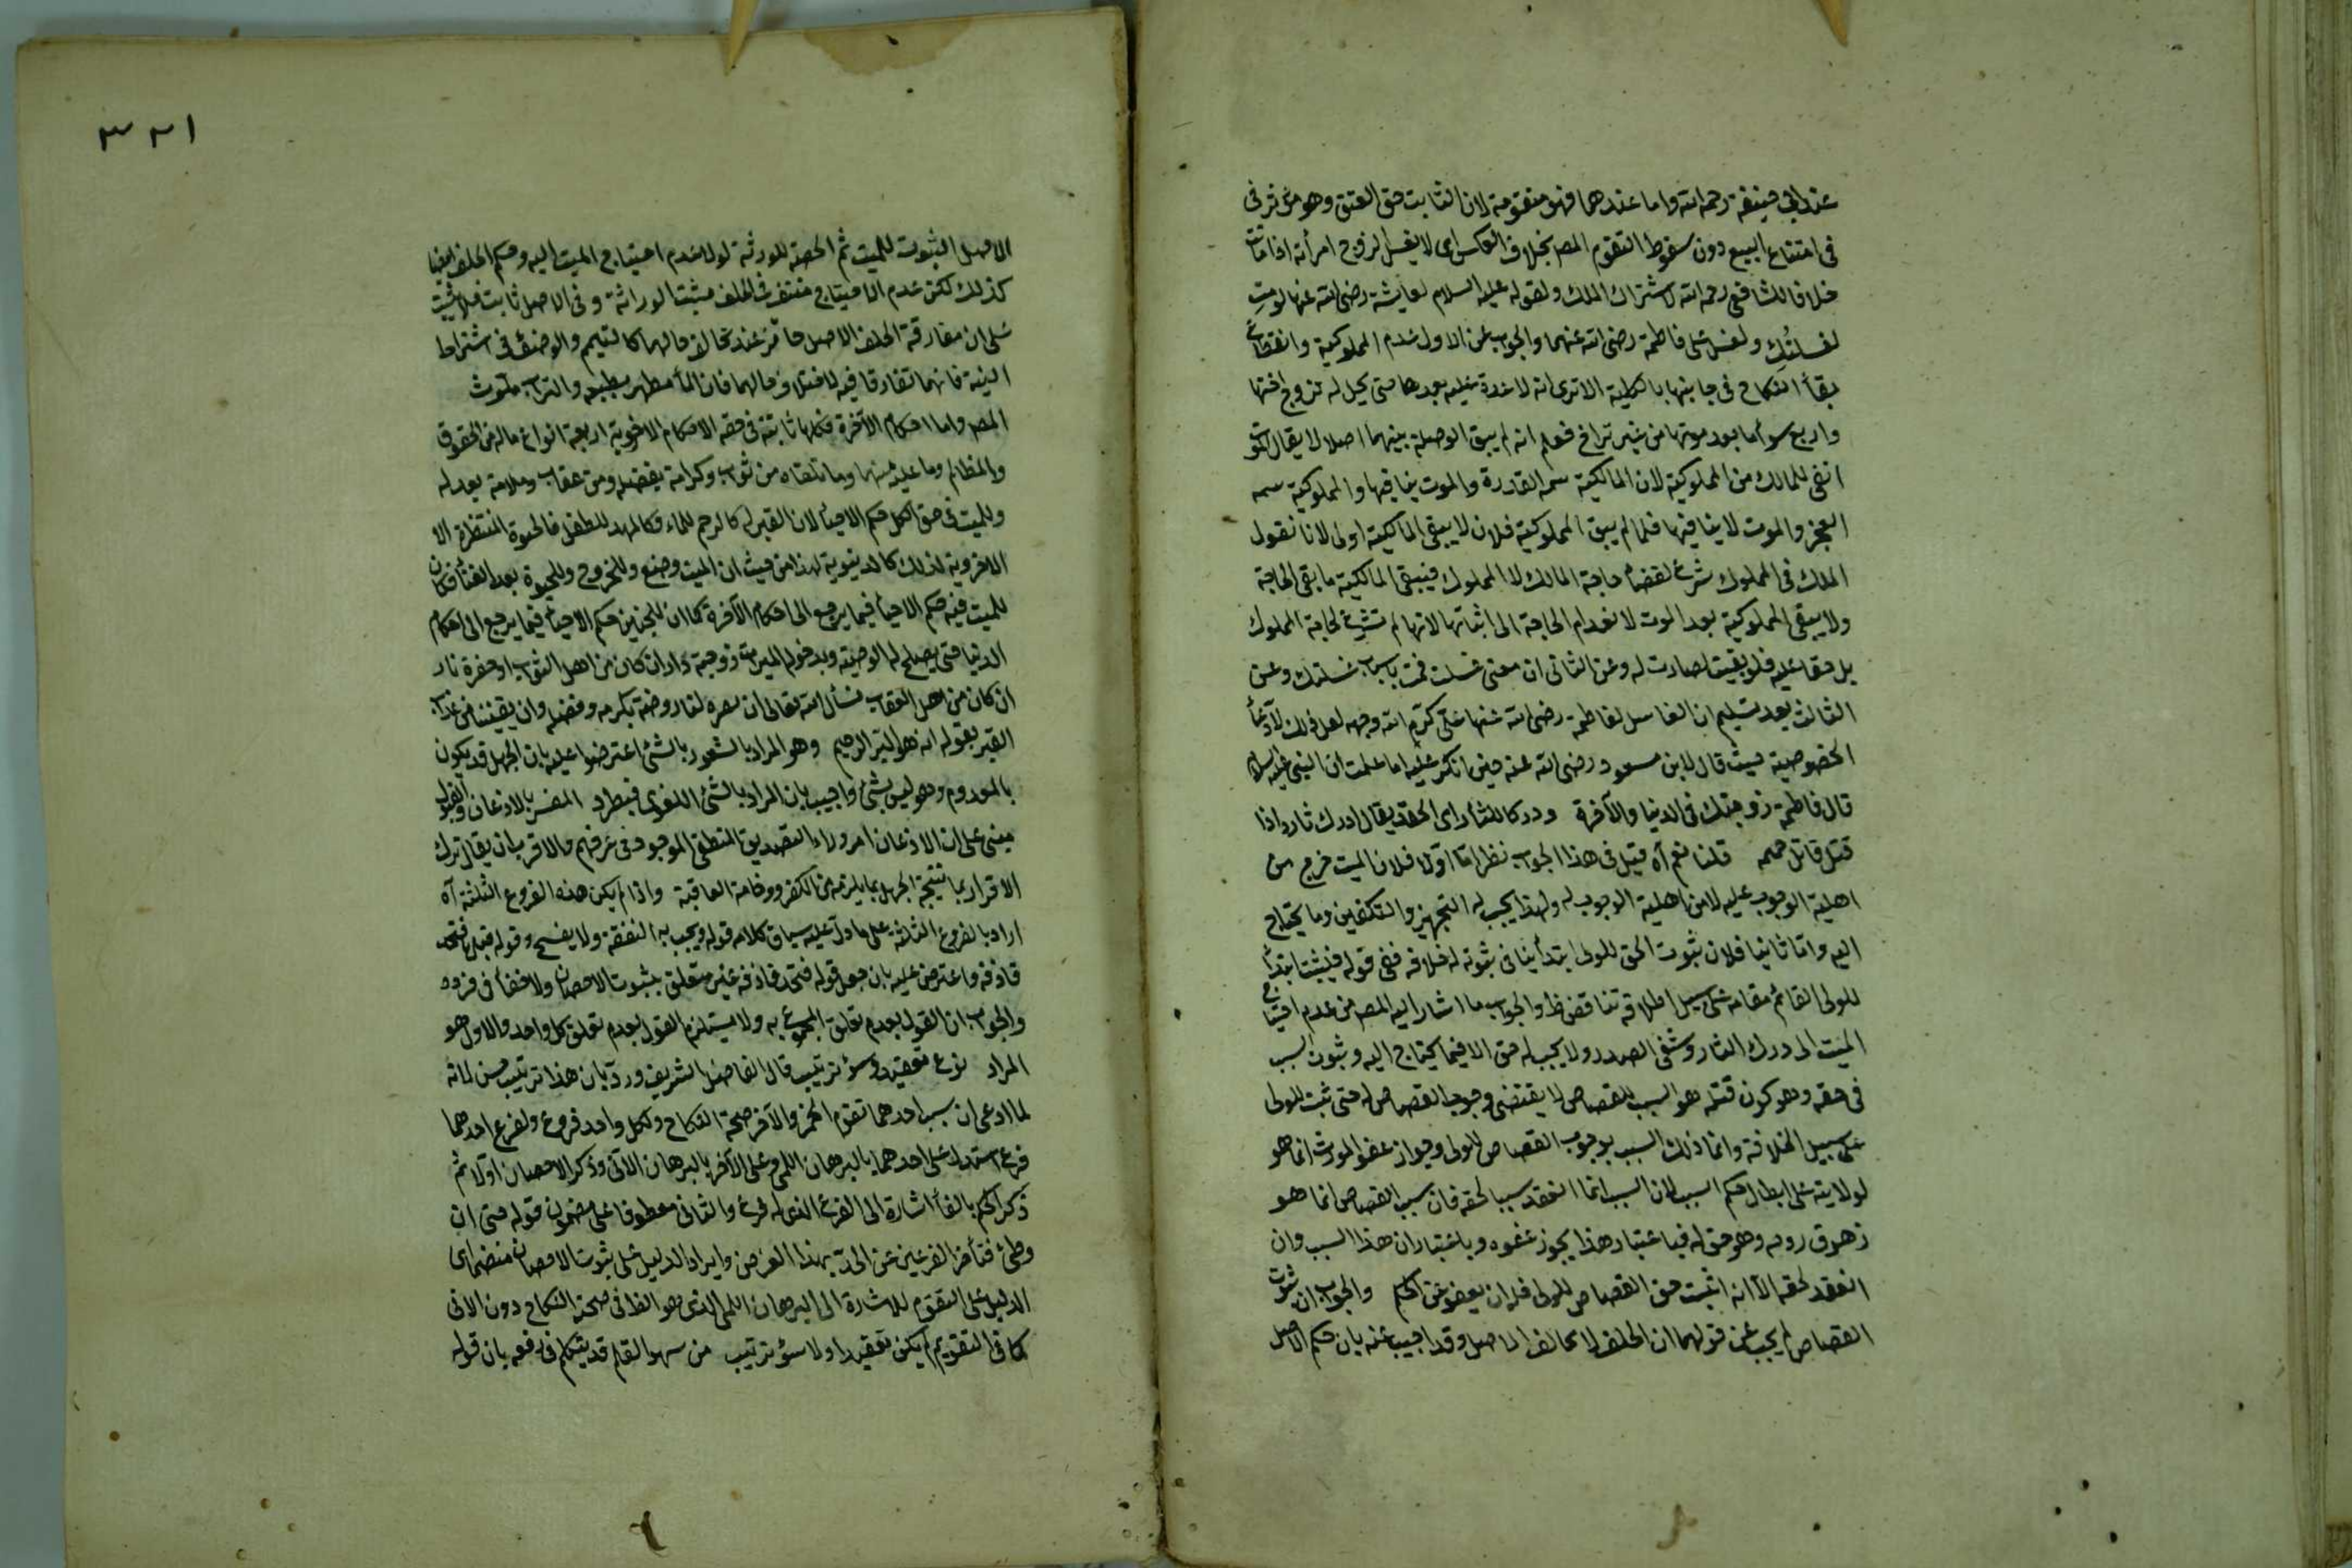 عند ابي حنيفة رحمه الله واما عندهما فهو متقومة لان الثابت حق العتق وهو مؤثر في
في امتناع البيع دون سقوط التقوم المصـ بخلاف العكس اى لا يغسل الزوج امرأته اذا ماتت
خلافا للشافعي رحمه الله لاشتراك الملك ولقوله عليه السلام لعايشة رضي الله عنها لو متِ
لغسلتُكِ ولغسل على فاطمة رضي الله عنهما والجواب عن الاول عدم المملوكية وانقطاع
بقاء النكاح في جانبها بالكلية الا ترى انه لا عدة عليه بعدها حتى يحل له تزوج اختها
واربع سواها بعد موتها من غير تراخ فعلم انه لم يبق الوصلة بينهما اصلا لا يقال الموت
انفى للمالك من المملوكية لان المالكية سمة القادرة والموت ينافيها والمملوكية سمه
العجز والموت لا ينافيها فلما لم يبق المملوكية فلان لا يبقى المالكية اولى لانا نقول
الملك في المملوك شرع لقضاء حاجة المالك لا المملوك فيبقى المالكية ما بقي الحاجة
ولا يبقى المملوكية بعد الموت لانعدام الحاجة الى اثباتها لانها لم تشرع لحاجة المملوك
بل حقا عليه فلو بقيت لصارت له وعن الثاني ان معنى غسلت قمت باسباب غسلك وعن
الثالث بعد تسليم ان الغاسل لفاطمة رضي الله عنها علي كرّم الله وجهه لعل ذلك لادعاء
الخصوصية حيث قال لابن مسعود رضي الله عنه حين انكر عليه اما علمت ان النبي عليه السلام
قال فاطمة زوجتك في الدنيا والآخرة ودركا للثأر اى الحقد يقال ادرك ثاره اذا
قتل قاتل حميمه قلنا نعم آه قيل في هذا الجواب نظر اما اولا فلان الميت خرج من
اهلية الوجوب عليه لا من اهلية الوجوب له ولهذا يجب له التجهيز والتكفين وما يحتاج
اليه واما ثانيا فلان ثبوت الحق للولى ابتداء ينافي ثبوته له خلافة ففي قوله فيثبت ابتداء
للولى القائم مقامه على سبيل الخلافة تناقض ظ والجواب ما اشار اليه المصـ من عدم احتياج
الميت الى درك الثار وشفى الصدر ولا يجب له حق الا فيما يحتاج اليه وثبوت السبب
في حقه وهو كون قتله هو السبب للقصاص لا يقتضي وجوب القصاص له حتى ثبت للولى
على سبيل الخلافة وانما ذلك السبب بوجوب القصاص للولى وجواز عفو المورث انما هو
لولايته على ابطال حكم السبب لان السبب انما انعقد سببا لحقه فان سبب القصاص انما هو
زهوق روحه وهو حق له فباعتبار هذا يجوز عفوه وباعتبار ان هذا السبب وان
انعقد لحقه الا انه اثبت حق القصاص للولى فله ان يعفو عن الحكم والجواب ان ثبوت
القصاص لم يجب عن قولهما ان الخلف لا يخالف الاصل وقد اجيب عنه بان حكم الاصل
٣٢١
الاصل الثبوت للميت ثم الحصة للورثة لولا عدم احتياج الميت اليه وحكم الخلف ايضا
كذلك لكن عدم الاحتياج منتف في الخلف مثبتا لوراثة وفي الاصل ثابت فلا يثبت
على ان مفارقة الخلف الاصل جائز عند تخالف حالهما كالتيمم والوضوء في اشتراط
النية فانهما تفارقا فيه لاختلاف حالهما فان الماء مطهر بطبعه والتراب ملوث
المصـ واما احكام الآخرة فكلها ثابتة في حقه الاحكام الاخروية اربعة انواع ماله من الحقوق
والمظالم وما عليه منها وما تلقاه من ثواب وكرامة بفضله ومن عقاب وملامة بعدله
وللميت في حق الكل حكم الاحياء لان القبر له كالرحم للماء وكالمهد للطفل فالحيوة المنتظرة الا
الاخروية لذلك كالدنيوية لهذا من حيث ان الميت وضع وللخروج وللحيوة بعد الفناء فكان
للميت فيه حكم الاحياء فيما يرجع الى احكام الآخرة كما ان للجنين حكم الاحياء فيما يرجع الى احكام
الدنيا حتى يصلح له الوصية ويدخول الميراث وزوجية دار ان كان من اهل الثواب او حفرة نار
ان كان من اهل العقاب نسأل الله تعالى ان يصيره لنا روضة بكرمه وفضله وان يقيننا من عذاب
القبر بقوله انه هو البر الرحيم وهو المراد بالشعور بالشئ اعترضوا عليه بان الجهل قد يكون
بالمعدوم وهو ليس بشئ واجيب بان المراد بالشئ اللغوى فيطرد المفسر بالاذعان والقبول
مبني على ان الاذعان امر وراء التصديق المنطقي الموجود في عرفهم والاقرب ان يقال ترك
الاقرار بما نتيجة الجهل بما يلزمه من الكفر ووخامة العاقبة واذا لم يكن هذه الفروع الثلثة آه
اراد بالفروع الثلاثة على ما دل عليه سياق كلامه قوله ويجب به النفقة ولا يفسخ وقوله قبلها فتحد
قاذفه واعترض عليه بان جعل قوله فتحد قاذفه غير متعلق بثبوت الاحصان ولا خفأ في فروده
والجواب ان القول بعدم تعلق المجموع به ولا يستلزم القول بعدم تعلق كل واحد والاول هو
المراد نوع تعقيد وسوء ترتيب قال الفاضل الشريف وردّ بان هذا ترتيب حسن لانه
لما ادعى ان سبب احدهما تقوم الخمر والآخر صحة النكاح ولكل واحد فروع ولفرع احدهما
فرع استدل على احدهما بالبرهان اللمي وعلى الآخر بالبرهان الآني وذكر الاحصان اولا ثم
ذكر الحكم بالفأ اشارة الى الفرع الذى له فرع والثاني معطوفا على مضمون قوله حتى ان
وطئ فتأخر الفرعين عن الحدّ بهذا الغرض وايراد الدليل على ثبوت الاحصان منضما الى
الدليل على التقوم للاشارة الى البرهان اللمي الذى هو الظ في صحة النكاح دون الاني
كما في التقويم لم يكن تعقيدا ولا سوء ترتيب من سهو القلم قد يتكلم في دفعه بان قوله